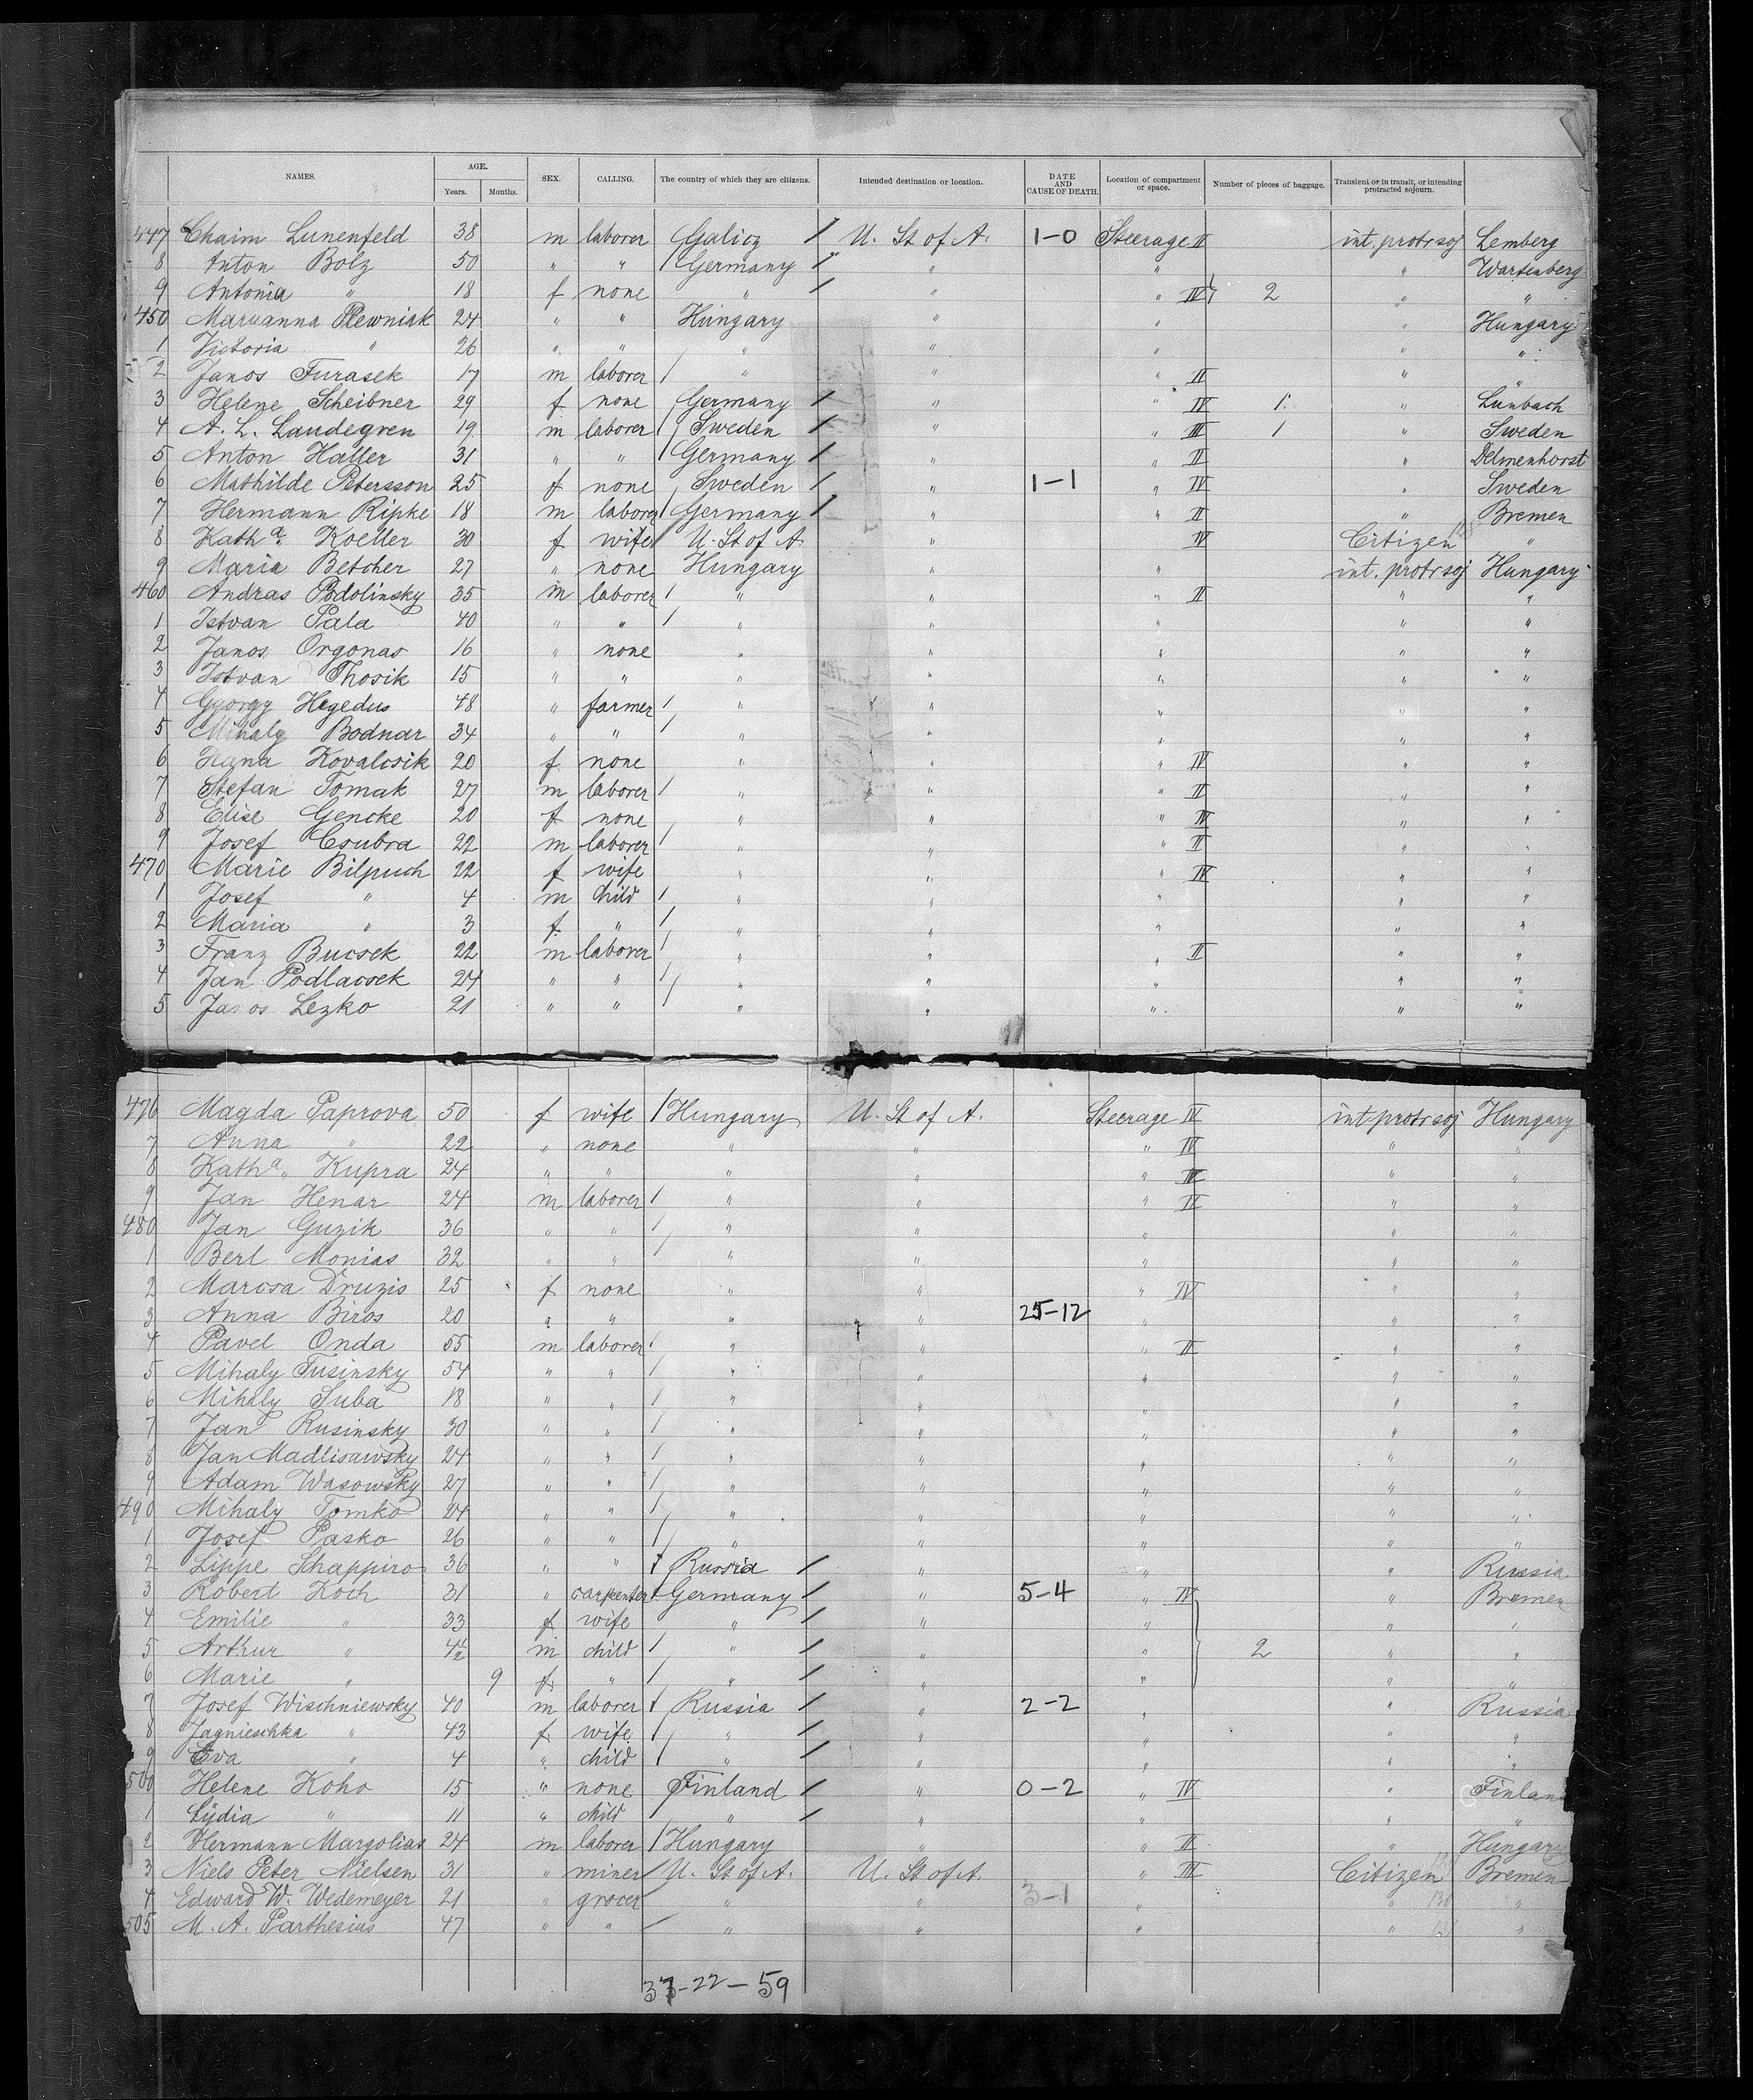 NAMES. AGE. Years. Months. SEX. CALLING. The country of which they are citizens. Intended destination or location. DATE AND CAUSE OF DEATH. Location of compartment or space. Number of pieces of baggage. Transient or in transit, or intending protracted sojourn.
447 Chaim Lunenfeld 38 m laborer Galicz / U. St of A. 1-0 Steerage II int. protr soj Lemberg
8 Anton Bolz 50 " " / Germany / " " " Wartenberg
9 Antonia " 18 f none " / " " IV } 2 " "
450 Maruanna Plewniak 24 " " Hungary " " " Hungary
1 Victoria " 26 " " " " " " "
2 Janos Furasek 17 m laborer / " " " II " "
3 Helene Scheibner 29 f none / Germany / " " IV 1 " Lunbach
4 A. L. Laudegren 19 m laborer / Sweden / " " III 1 " Sweden
5 Anton Haller 31 " " / Germany / " " II " Delmenhorst
6 Mathilde Petersson 25 f none / Sweden / " 1-1 " IV " Sweden
7 Hermann Ripke 18 m laborer / Germany / " " II " Bremen
8 Katha. Koeller 30 f wife / U. St of A. " IV Citizen "
9 Maria Betcher 27 " none Hungary " " int. protr soj Hungary
460 Andras Podolinsky 35 m laborer / " " " II " "
1 Istvan Pala 40 " " / " " " " "
2 Janos Orgonas 16 " none " " " " "
3 Istvan Thosik 15 " " " " " " "
4 Gyorgy Hegedus 48 " farmer / " " " " "
5 Mihaly Bodnar 34 " " / " " " " "
6 Hana Kovalcsik 20 f none " " " IV " "
7 Stefan Tomak 27 m laborer / " " " II " "
8 Elise Gencke 20 f none " " " IV " "
9 Josef Csubra 22 m laborer / " " " II " "
470 Marie Bilpuch 22 f wife " " " IV " "
1 Josef " 4 m child / " " " " "
2 Maria " 3 f " / " " " " "
3 Franz Bucsek 22 m laborer / " " " II " "
4 Jan Podlacsek 24 " " / " " " " "
5 Janos Lezko 21 " " / " " " " "
476 Magda Paprova 50 f wife / Hungary U. St of A. Steerage IV int protr soj Hungary
7 Anna " 22 " none " " " IV " "
8 Katha. Kupra 24 " " " " " IV " "
9 Jan Henar 24 m laborer / " " " II " "
480 Jan Guzik 36 " " / " " " " "
1 Berl Monias 32 " " / " " " " "
2 Marcsa Druzis 25 f none " " " IV " "
3 Anna Biros 20 " " " " 25-12 " " "
4 Pavel Onda 55 m laborer / " " " II " "
5 Mihaly Fusinsky 54 " " / " " " " "
6 Mihaly Suba 18 " " / " " " " "
7 Jan Rusinsky 30 " " / " " " " "
8 Jan Madlisawsky 24 " " / " " " " "
9 Adam Wasowsky 27 " " / " " " " "
490 Mihaly Tomko 24 " " / " " " " "
1 Josef Pasko 26 " " / " " " " "
2 Lippe Schappiro 36 " " / Russia / " " " Russia
3 Robert Koch 31 " carpenter / Germany / " 5-4 " IV " Bremen
4 Emilie " 33 f wife " / " " " "
5 Arthur " 4½ m child / " / " " 2 " "
6 Marie " 9 f " / " / " " " "
7 Josef Wischniewsky 40 m laborer / Russia / " 2-2 " " Russia
8 Jagnieschka " 43 f wife / " / " " " "
9 Eva " 4 " child / " / " " " "
500 Helene Koho 15 " none Finland / " 0-2 " IV " Finland
1 Lydia " 11 " child / " / " " " "
2 Hermann Margolias 24 m laborer / Hungary " " II " Hungary
3 Niels Peter Nielsen 31 " miner / U. St of A. U. St of A. " III Citizen Bremen
4 Edward W. Wedemeyer 21 " grocer " " 3-1 " " 130 "
505 M. A. Parthesius 47 " " / " " " " 131 "
37-22-59